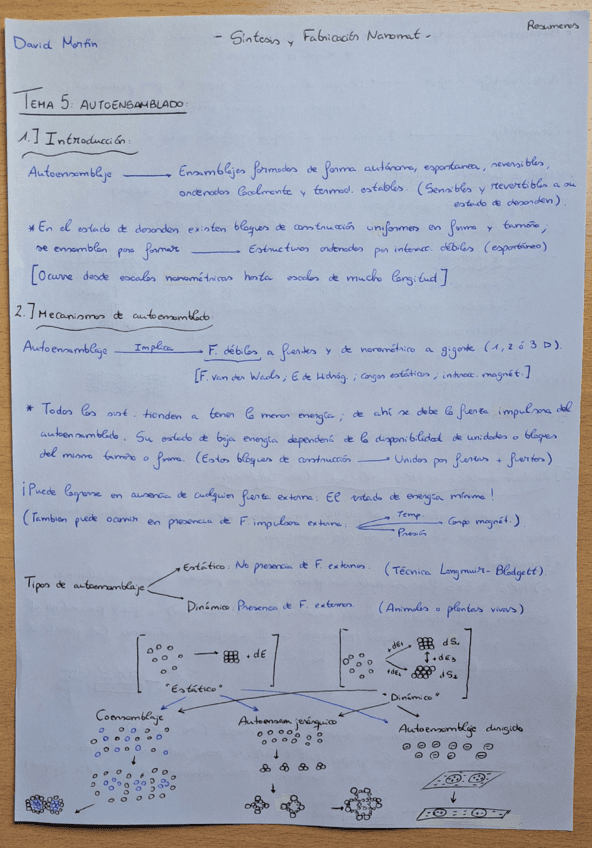 Resumenes
David Martín
- Síntesis y Fabricación Nanomat -
TEMA 5: AUTOENSAMBLADO:
1.] Introducción:
Autoensamblaje → Ensamblajes formados de forma autónoma, espontanea, reversibles,
ordenados localmente y termod. estables. (Sensibles y revertibles a su
estado de desorden).
* En el estado de desorden existen bloques de construcción uniformes en forma y tamaño;
se ensamblan para formar → Estructuras ordenadas por interacc. débiles (espontáneo)
[Ocurre desde escalas nanométricas hasta escalas de mucha longitud]
2.] Mecanismos de autoensamblado:
Autoensamblaje Implica → F. débiles a fuertes y de nanométrico a gigante (1, 2 ó 3 D).
[F. van der Waals, E de Hidróg.; cargas estáticas, interacc. magnét.]
* Todos los sist. tienden a tener la menor energía; de ahí se debe la fuerza impulsora del
autoensamblado. Su estado de baja energía dependerá de la disponibilidad de unidades o bloques
del mismo tamaño o forma. (Estos bloques de construcción → Unidos por fuerzas + fuertes)
¡Puede lograrse en ausencia de cualquier fuerza externa: El estado de energía mínima!
(Tambien puede ocurrir en presencia de F. impulsora externa: Temp. Presión Campo magnét.)
Tipos de autoensamblaje
Estático: No presencia de F. externas. (Técnica Langmuir-Blodgett)
Dinámico: Presencia de F. externas. (Animales o plantas vivas)
+ dE
+dE1 dS1
+dE3
+dE2 dS2
"Estático"
"Dinámico"
Coensamblaje
Autoensam. jerárquico
Autoensamblaje dirigido